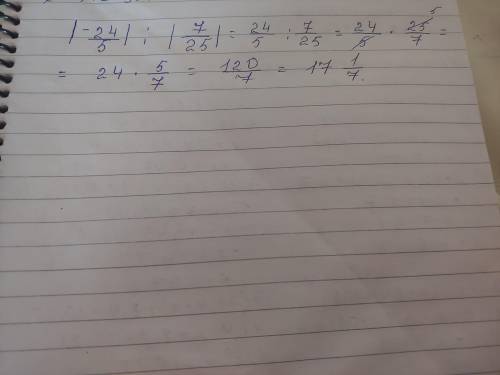 |-24/5| : |7/25| = 24/5 : 7/25 = 24/5 · 25/7 5 =
= 24 · 5/7 = 120/7 = 17 1/7.